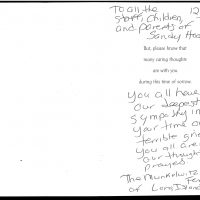 To all the 12
staff, children,
and parents of
Sandy Hoo
But, please know that
many caring thoughts
are with you
during this time of sorrow.
You all have
our deepest
sympathy in
your time of
terrible grie
you all are i
our thoughts
prayers
The
of Long Island